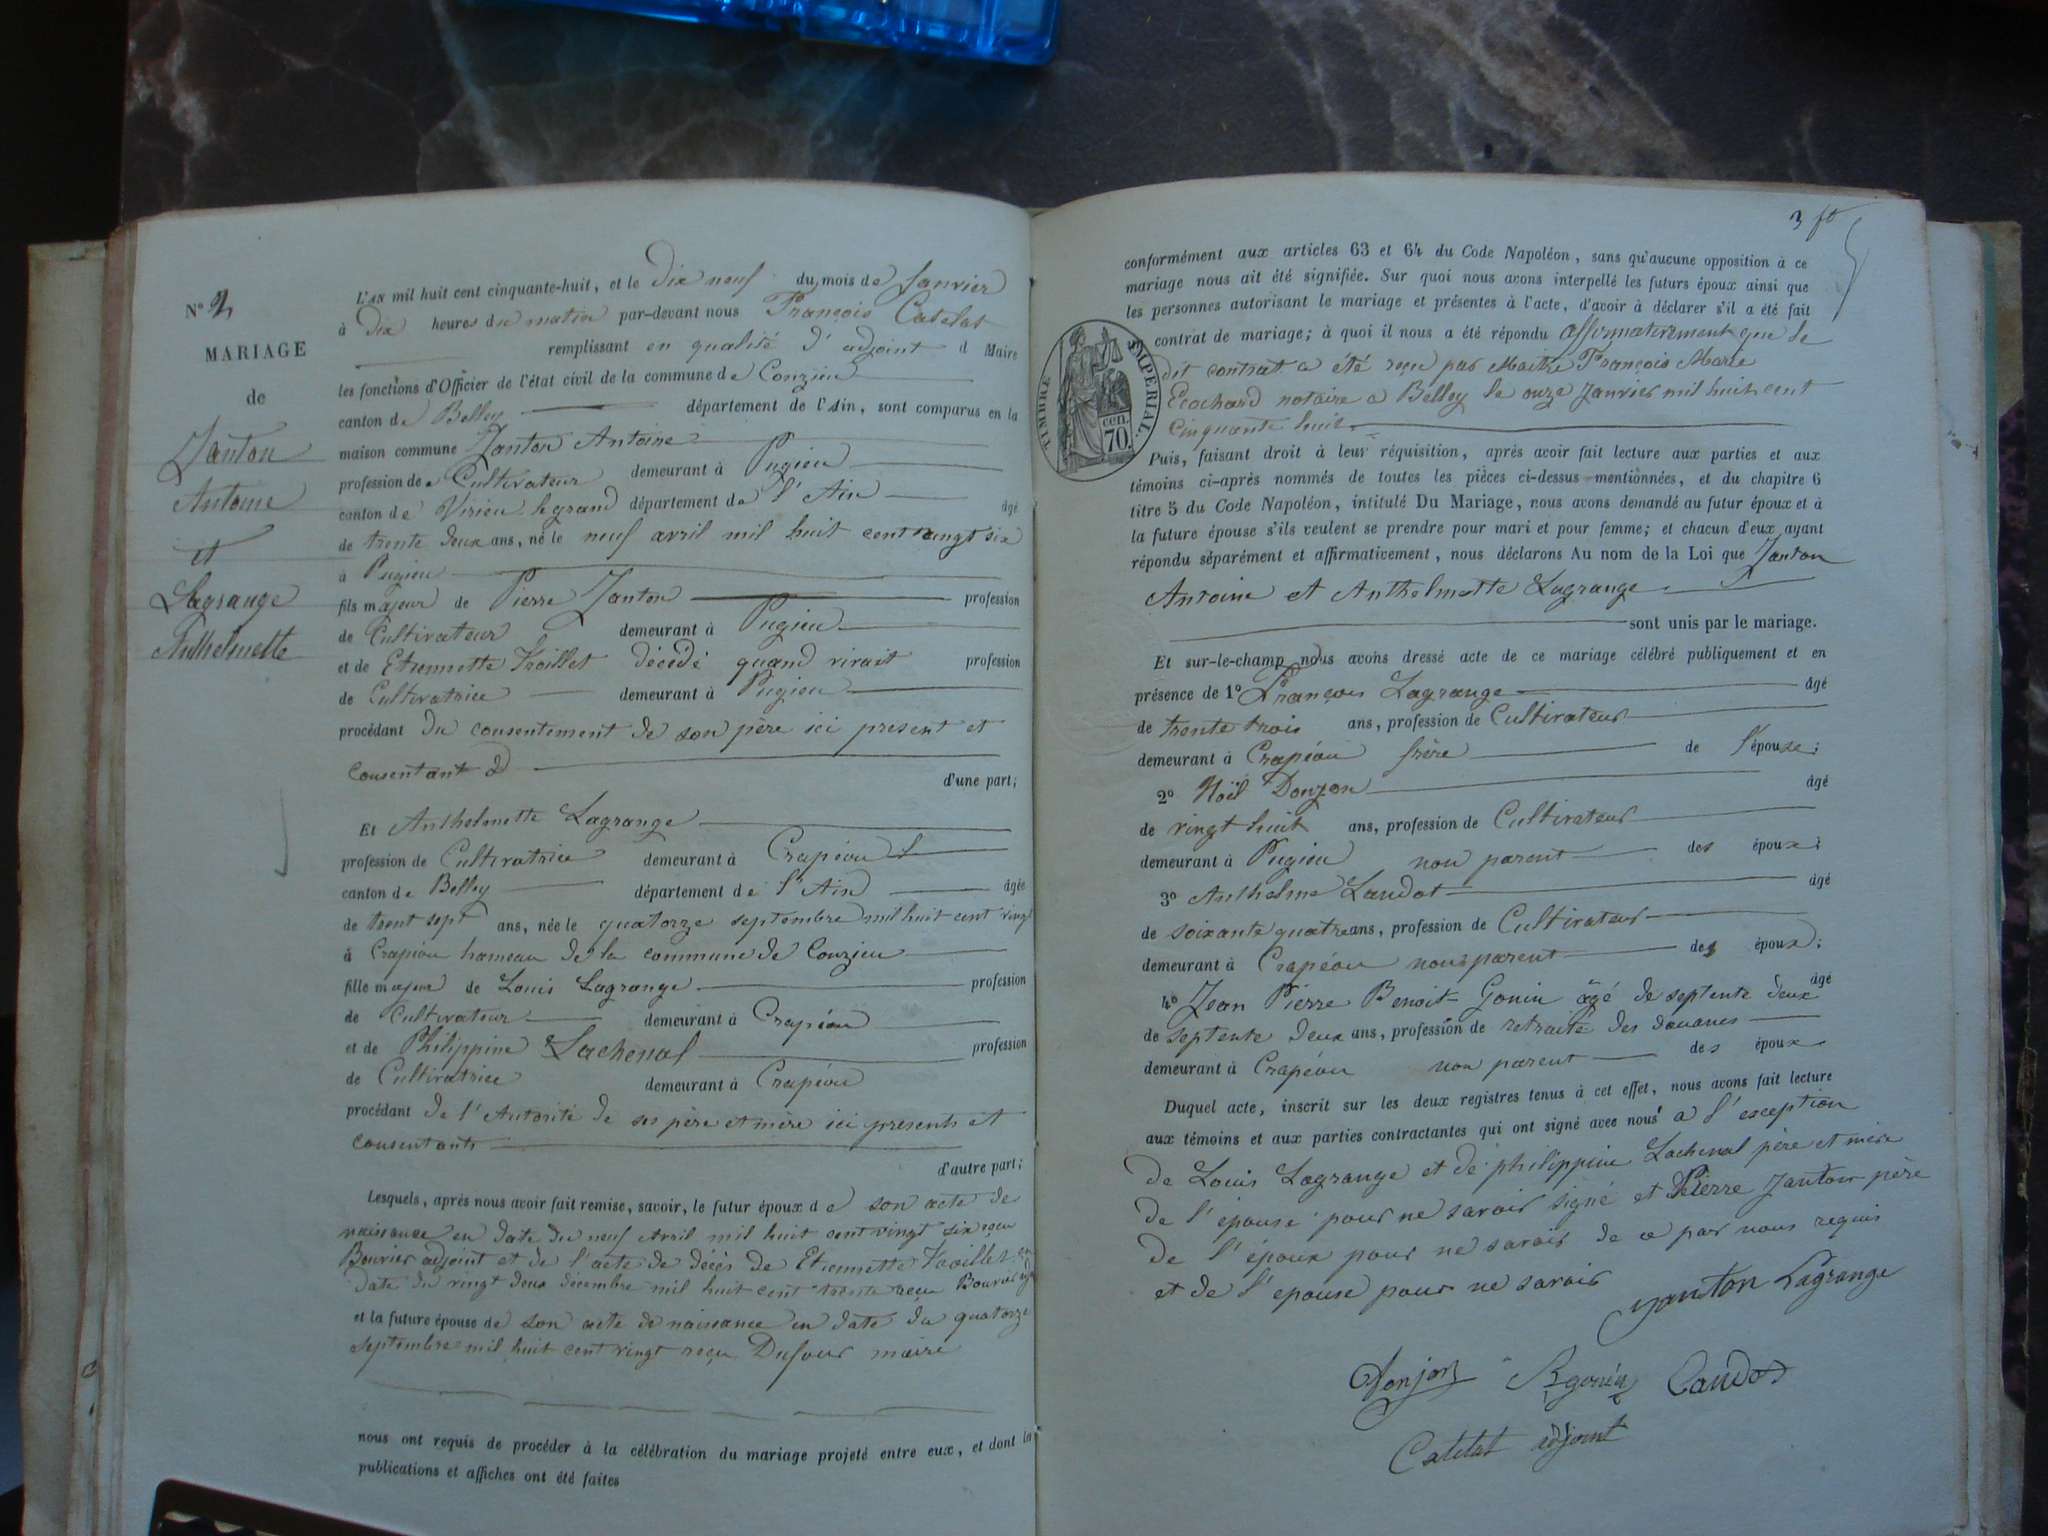 N° 2
MARIAGE
de
Janton
Antoine
et
Lagrange
Anthelmette
L'AN mil huit cent cinquante-huit, et le dix neuf du mois de Janvier
à Dix heures du matin par-devant nous François Catelat
remplissant en qualité d'adjoint d Maire
les fonctions d'Officier de l'état civil de la commune de Conzieu
canton de Belley département de l'Ain, sont comparus en la
maison commune Janton Antoine
profession de Cultivateur demeurant à Pugieu
canton de Virieu legrand département de l'Ain âgé
de trente deux ans, né le neuf avril mil huit cent vingt six
à Pugieu
fils majeur de Pierre Janton profession
de Cultivateur demeurant à Pugieu
et de Etiennette décédé quand vivait profession
de Cultivatrice demeurant à Pugieu
procédant du consentement de son père ici present et
consentant d
d'une part;
Et Anthelmette Lagrange
profession de Cultivatrice demeurant à Crapéou
canton de Belley département de l'Ain âgée
de trent sept ans, née le quatorze septembre mil huit cent vingt
à Crapéou hameau de la commune de Conzieu
fille majeur de Louis Lagrange profession
de Cultivateur demeurant à Crapéou
et de Philippine Lachenal profession
de Cultivatrice demeurant à Crapéou
procédant de l'Autorité de ses père et mère ici presents et
consentants
d'autre part;
Lesquels, après nous avoir fait remise, savoir, le futur époux de son acte de
naissance en date du neuf Avril mil huit cent vingt six reçu
Bouvier adjoint et de l'acte de décès de Etiennette en
date du vingt deux décembre mil huit cent trente reçu Bouvier adj
et la future épouse de son acte de naissance en date du quatorze
septembre mil huit cent vingt reçu Dufour maire
nous ont requis de procéder à la célébration du mariage projeté entre eux, et dont les
publications et affiches ont été faites
3
TIMBRE IMPERIAL
70 cen.
conformément aux articles 63 et 64 du Code Napoléon, sans qu'aucune opposition à ce
mariage nous ait été signifiée. Sur quoi nous avons interpellé les futurs époux ainsi que
les personnes autorisant le mariage et présentes à l'acte, d'avoir à déclarer s'il a été fait
contrat de mariage; à quoi il nous a été répondu affirmativement que le
dit contrat a été reçu par Maitre François Marie
Ecochard notaire a Belley le onze Janvier mil huit cent
Cinquante huit.
Puis, faisant droit à leur réquisition, après avoir fait lecture aux parties et aux
témoins ci-après nommés de toutes les pièces ci-dessus mentionnées, et du chapitre 6
titre 5 du Code Napoléon, intitulé Du Mariage, nous avons demandé au futur époux et à
la future épouse s'ils veulent se prendre pour mari et pour femme; et chacun d'eux ayant
répondu séparément et affirmativement, nous déclarons Au nom de la Loi que Janton
Antoine et Anthelmette Lagrange
sont unis par le mariage.
Et sur-le-champ nous avons dressé acte de ce mariage célébré publiquement et en
présence de 1° François Lagrange âgé
de trente trois ans, profession de Cultivateur
demeurant à Crapéou frère de l'épouse;
2° Noël Donjon âgé
de vingt huit ans, profession de Cultivateur
demeurant à Pugieu non parent des époux;
3° Anthelme Landot âgé
de soixante quatre ans, profession de Cultivateur
demeurant à Crapéou non parent des époux;
4° Jean Pierre Benoit Gonin âgé de septente deux âgé
de septente deux ans, profession de retraité des douanes
demeurant à Crapéou non parent des époux
Duquel acte, inscrit sur les deux registres tenus à cet effet, nous avons fait lecture
aux témoins et aux parties contractantes qui ont signé avec nous a l'exception
de Louis Lagrange et de philippine Lachenal père et mère
de l'épouse pour ne savoir signé et Pierre Janton père
de l'époux pour ne savoir de ce par nous requis
et de l'epouse pour ne savoir
janton Lagrange
Donjon Bgonin Landot
Catelat adjoint